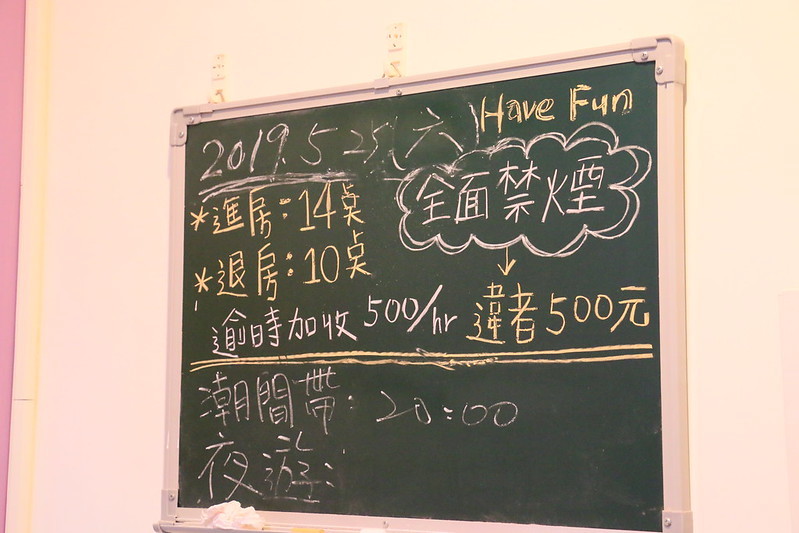 2019.5 25(六)
Have Fun
全面禁煙
*進房:14點
*退房:10點
逾時加收500/hr
↓
違者500元
潮間帶:20:00
夜遊: